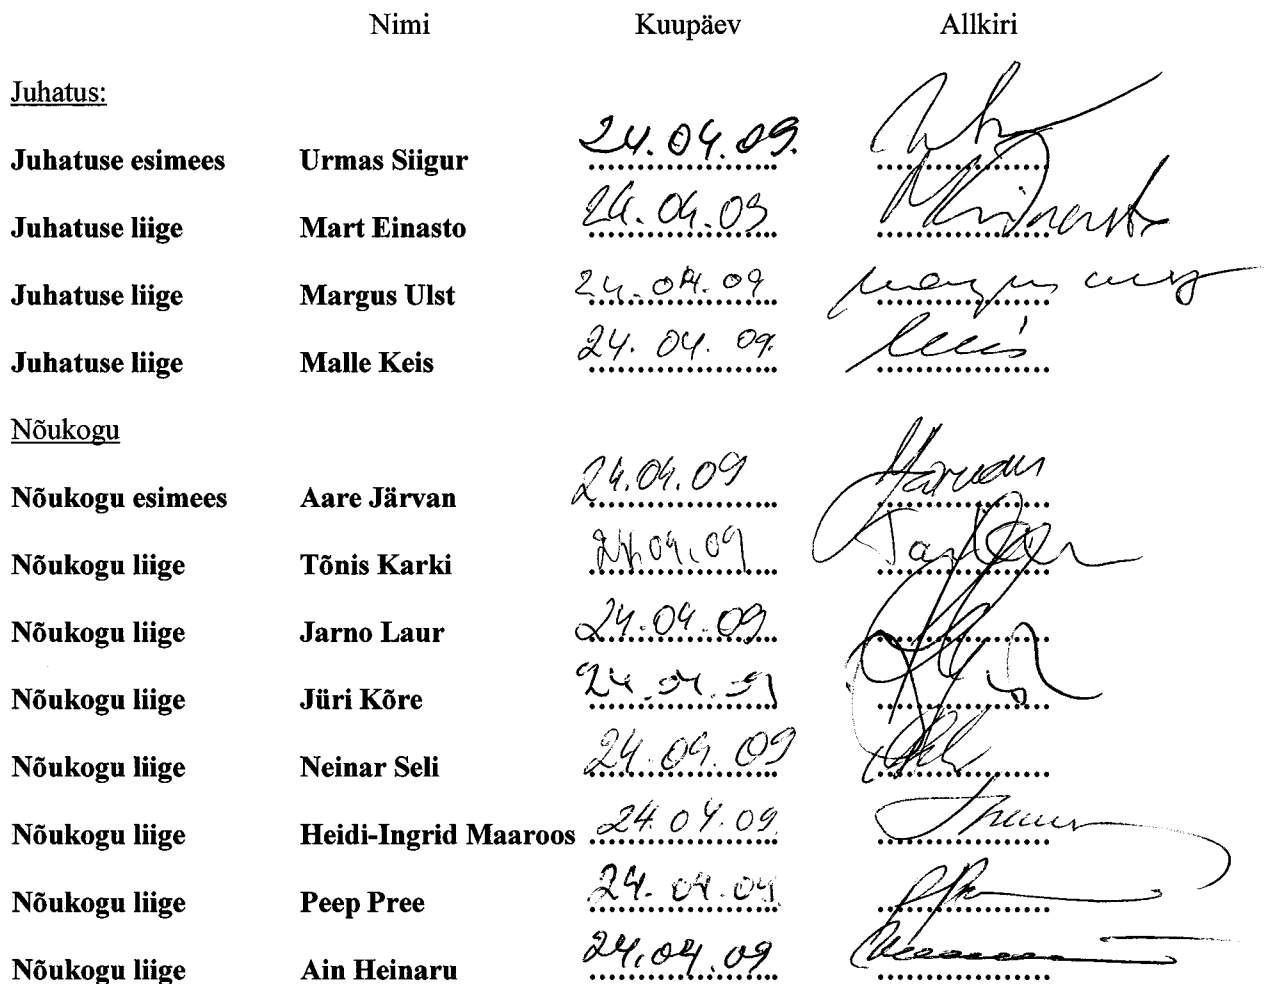 Nimi Kuupäev Allkiri
Juhatus:
Juhatuse esimees Urmas Siigur 24.04.09.
Juhatuse liige Mart Einasto 24.04.09
Juhatuse liige Margus Ulst 24.04.09
Juhatuse liige Malle Keis 24.04.09.
Nõukogu
Nõukogu esimees Aare Järvan 24.04.09
Nõukogu liige Tõnis Karki 24.04.09
Nõukogu liige Jarno Laur 24.04.09
Nõukogu liige Jüri Kõre 24.04.09
Nõukogu liige Neinar Seli 24.04.09
Nõukogu liige Heidi-Ingrid Maaroos 24.04.09
Nõukogu liige Peep Pree 24.04.09
Nõukogu liige Ain Heinaru 24.04.09